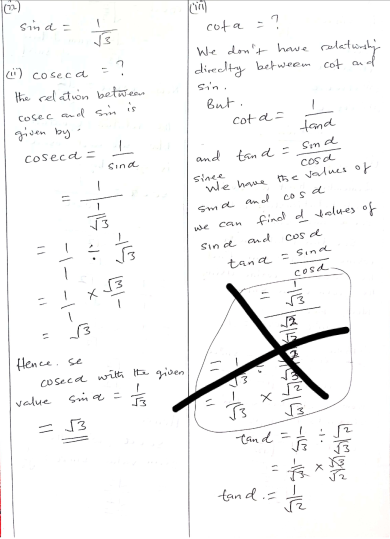 (22)
sin α = 1/√3
(ii) cosec α = ?
the relation between
cosec and sin is
given by.
cosec α = 1/sin α
= 1/(1/√3)
= 1/1 ÷ 1/√3
= 1/1 × √3/1
= √3
Hence. se
cosec α with the given
value sin α = 1/√3
= √3
(iii)
cot α = ?
We don't have relationship
directly between cot and
sin.
But.
cot α = 1/tan α
and tan α = sin α/cos α
since
We have the values of
sin α and cos α
we can find d values of
sin α and cos α
tan α = sin α/cos α
= 1/√3
√2
= 1/√3 ÷
= 1/√3 × √2/√3
tan α = 1/√3 ÷ √2/√3
= 1/√3 × √3/√2
tan α. = 1/√2